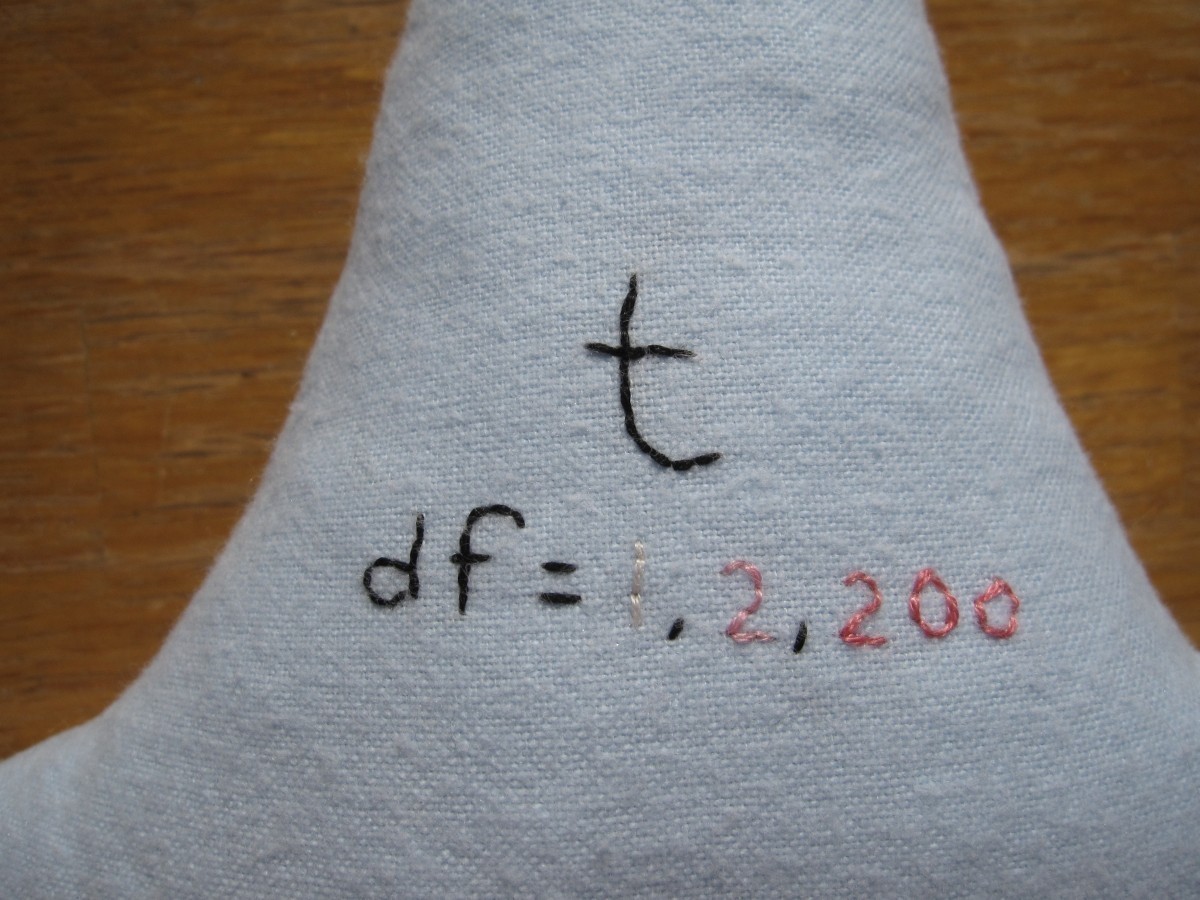 t
df = 1, 2, 200